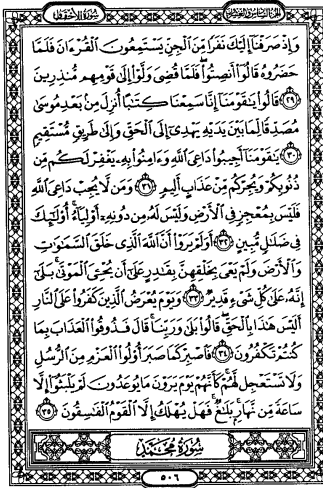 الجزء السادس والعشرون سورة الأحقاف
وَإِذْ صَرَفْنَآ إِلَيْكَ نَفَرًا مِّنَ ٱلْجِنِّ يَسْتَمِعُونَ ٱلْقُرْءَانَ فَلَمَّا
حَضَرُوهُ قَالُوٓا۟ أَنصِتُوا۟ فَلَمَّا قُضِىَ وَلَّوْا۟ إِلَىٰ قَوْمِهِم مُّنذِرِينَ
٢٩ قَالُوا۟ يَٰقَوْمَنَآ إِنَّا سَمِعْنَا كِتَٰبًا أُنزِلَ مِنۢ بَعْدِ مُوسَىٰ
مُصَدِّقًا لِّمَا بَيْنَ يَدَيْهِ يَهْدِىٓ إِلَى ٱلْحَقِّ وَإِلَىٰ طَرِيقٍ مُّسْتَقِيمٍ
٣٠ يَٰقَوْمَنَآ أَجِيبُوا۟ دَاعِىَ ٱللَّهِ وَءَامِنُوا۟ بِهِۦ يَغْفِرْ لَكُم مِّن
ذُنُوبِكُمْ وَيُجِرْكُم مِّنْ عَذَابٍ أَلِيمٍ ٣١ وَمَن لَّا يُجِبْ دَاعِىَ ٱللَّهِ
فَلَيْسَ بِمُعْجِزٍ فِى ٱلْأَرْضِ وَلَيْسَ لَهُۥ مِن دُونِهِۦٓ أَوْلِيَآءُ أُو۟لَٰٓئِكَ
فِى ضَلَٰلٍ مُّبِينٍ ٣٢ أَوَلَمْ يَرَوْا۟ أَنَّ ٱللَّهَ ٱلَّذِى خَلَقَ ٱلسَّمَٰوَٰتِ
وَٱلْأَرْضَ وَلَمْ يَعْىَ بِخَلْقِهِنَّ بِقَٰدِرٍ عَلَىٰٓ أَن يُحْۦِىَ ٱلْمَوْتَىٰ بَلَىٰٓ
إِنَّهُۥ عَلَىٰ كُلِّ شَىْءٍ قَدِيرٌ ٣٣ وَيَوْمَ يُعْرَضُ ٱلَّذِينَ كَفَرُوا۟ عَلَى ٱلنَّارِ
أَلَيْسَ هَٰذَا بِٱلْحَقِّ قَالُوا۟ بَلَىٰ وَرَبِّنَا قَالَ فَذُوقُوا۟ ٱلْعَذَابَ بِمَا
كُنتُمْ تَكْفُرُونَ ٣٤ فَٱصْبِرْ كَمَا صَبَرَ أُو۟لُوا۟ ٱلْعَزْمِ مِنَ ٱلرُّسُلِ
وَلَا تَسْتَعْجِل لَّهُمْ كَأَنَّهُمْ يَوْمَ يَرَوْنَ مَا يُوعَدُونَ لَمْ يَلْبَثُوٓا۟ إِلَّا
سَاعَةً مِّن نَّهَارٍ بَلَٰغٌ فَهَلْ يُهْلَكُ إِلَّا ٱلْقَوْمُ ٱلْفَٰسِقُونَ ٣٥
سُورَةُ مُحَمَّدٍ
٥٠٦